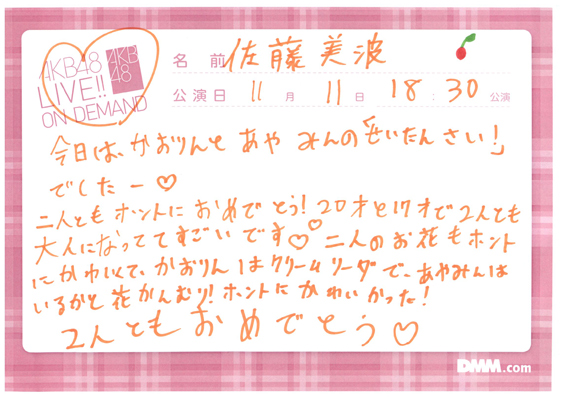 AKB48
LIVE!!
ON DEMAND
AKB
48
名 前 佐藤美波
公演日 11 月 11 日 18:30 公演
今日は、かおりんと あや みんの「せいたんさい!」
でしたー♡
二人とも ホントに おめでとう! 20才と17才で 2人とも
大人になっててすごいです♡♡ 二人のお花もホント
にかわいくて、かおりんはクリームソーダで、あやみんは
いるかと花かんむり! ホントにかわいかった!
2人ともおめでとう♡
DMM.com